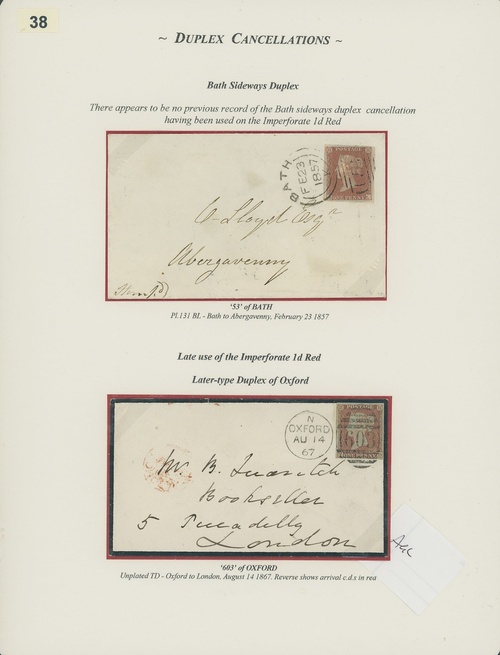 38
~ DUPLEX CANCELLATIONS ~
Bath Sideways Duplex
There appears to be no previous record of the Bath sideways duplex cancellation
having been used on the Imperforate 1d Red
BATH
FE 23
1857
POSTAGE
C. Lloyd Esqr
Abergavenny
'53' of BATH
Pl.131 BL - Bath to Abergavenny, February 23 1857
Late use of the Imperforate 1d Red
Later-type Duplex of Oxford
N
OXFORD
AU 14
67
POSTAGE
603
ONE PENNY
Mr. B. Quaritch
Bookseller
5 Piccadilly
London
'603' of OXFORD
Unplated TD - Oxford to London, August 14 1867. Reverse shows arrival c.d.s in rea